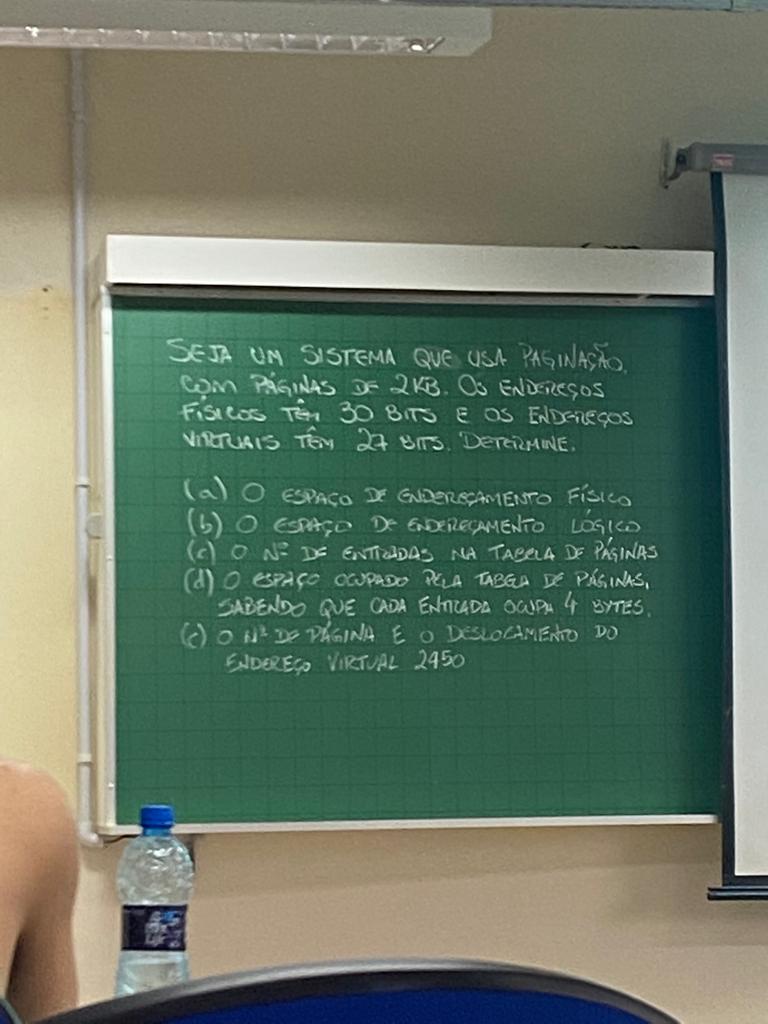 SEJA UM SISTEMA QUE USA PAGINAÇÃO,
COM PÁGINAS DE 2KB. OS ENDEREÇOS
FÍSICOS TÊM 30 BITS E OS ENDEREÇOS
VIRTUAIS TÊM 27 BITS. DETERMINE.
(a) O ESPAÇO DE ENDEREÇAMENTO FÍSICO
(b) O ESPAÇO DE ENDEREÇAMENTO LÓGICO
(c) O Nº DE ENTRADAS NA TABELA DE PÁGINAS
(d) O ESPAÇO OCUPADO PELA TABELA DE PÁGINAS,
SABENDO QUE CADA ENTRADA OCUPA 4 BYTES.
(e) O Nº DE PÁGINA E O DESLOCAMENTO DO
ENDEREÇO VIRTUAL 2950